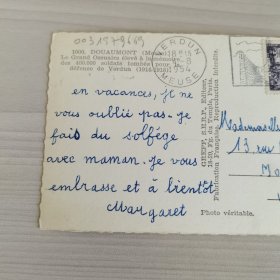 0031579669
1000. DOUAUMONT (Meuse)
Le Grand Ossuaire élevé à la mémoire
des 400.000 soldats tombés pour la
défense de Verdun (1916-1918)
VERDUN
18H15
8
1954
MEUSE
en vacances, je ne
vous oublie pas. je
fais du solfège
avec maman. je vous
embrasse et à bientôt
Margaret
Photo véritable.
Fabrication Française. Reproduction Interdite.
Mademoiselle
13 rue